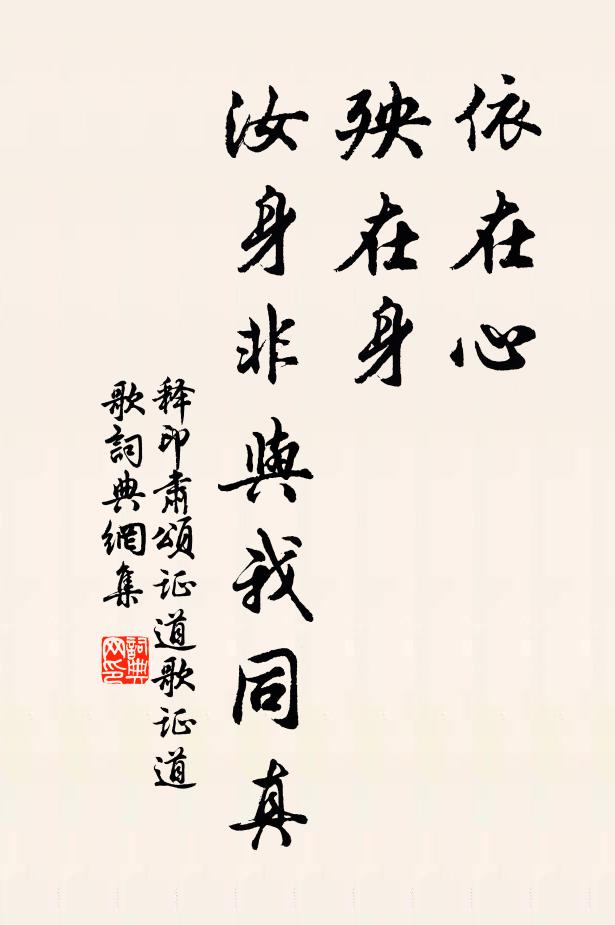 依在心
殃在身
汝身非與我同真
释印肃颂证道歌证道
歌詞典網集
詞典
网印